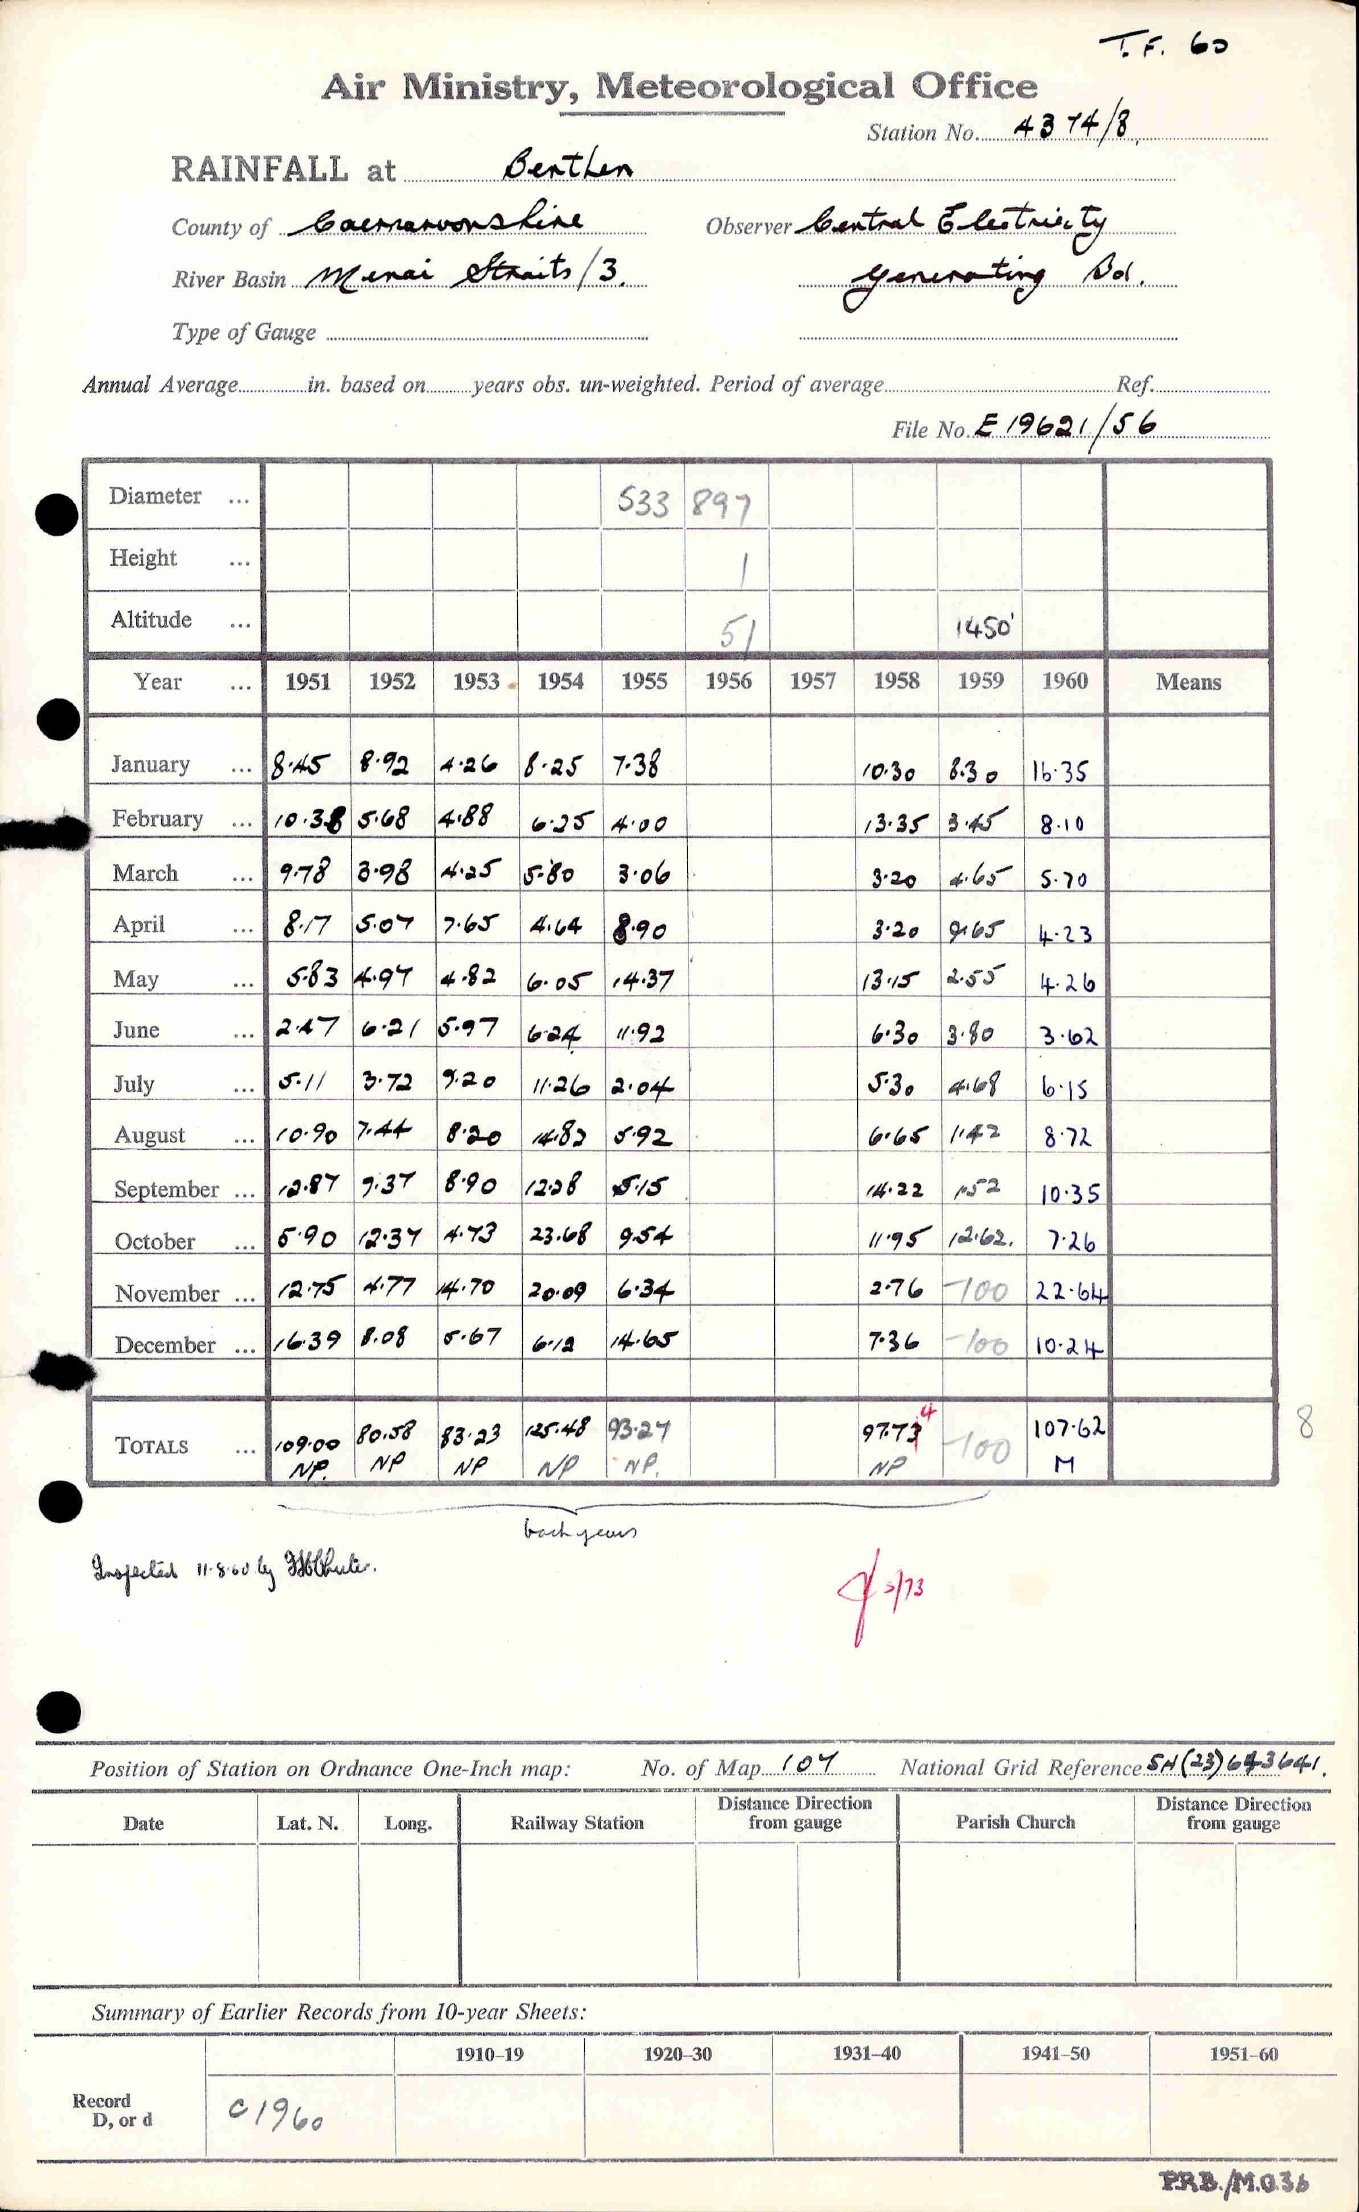 T.F. 60
Air Ministry, Meteorological Office
Station No. 4374/8
RAINFALL at Benthen
County of Caernarvonshire Observer Central Electricity
River Basin Menai Straits/3. Generating Bd.
Type of Gauge
Annual Average in. based on years obs. un-weighted. Period of average Ref.
File No. E 19621/56
Diameter ... 533 897
Height ... 1
Altitude ... 51 1450'
Year ... 1951 1952 1953 1954 1955 1956 1957 1958 1959 1960 Means
January ... 8.45 8.92 4.26 8.25 7.38 10.30 8.30 16.35
February ... 10.38 5.68 4.88 6.25 4.00 13.35 3.45 8.10
March ... 9.78 3.98 4.25 5.80 3.06 3.20 4.65 5.70
April ... 8.17 5.07 7.65 4.64 8.90 3.20 9.65 4.23
May ... 5.83 4.97 4.82 6.05 14.37 13.15 2.55 4.26
June ... 2.47 6.21 5.97 6.24 11.92 6.30 3.80 3.62
July ... 5.11 3.72 9.20 11.26 2.04 5.30 4.68 6.15
August ... 10.90 7.44 8.20 14.82 5.92 6.65 1.42 8.72
September ... 12.87 9.37 8.90 12.28 5.15 14.22 1.52 10.35
October ... 5.90 12.37 4.73 23.68 9.54 11.95 12.62. 7.26
November ... 12.75 4.77 14.70 20.09 6.34 2.76 -100 22.64
December ... 16.39 8.08 5.67 6.12 14.65 7.36 -100 10.24
TOTALS ... 109.00 80.58 83.23 125.48 93.27 97.73 4 -100 107.62 8
NP. NP NP NP NP. NP M
back years
Inspected 11.8.60 by
5/73
Position of Station on Ordnance One-Inch map: No. of Map 107 National Grid Reference SH(23)643641.
Date Lat. N. Long. Railway Station Distance Direction from gauge Parish Church Distance Direction from gauge
Summary of Earlier Records from 10-year Sheets:
1910–19 1920–30 1931–40 1941–50 1951–60
Record
D, or d C1960
P.R.B./M.O.36